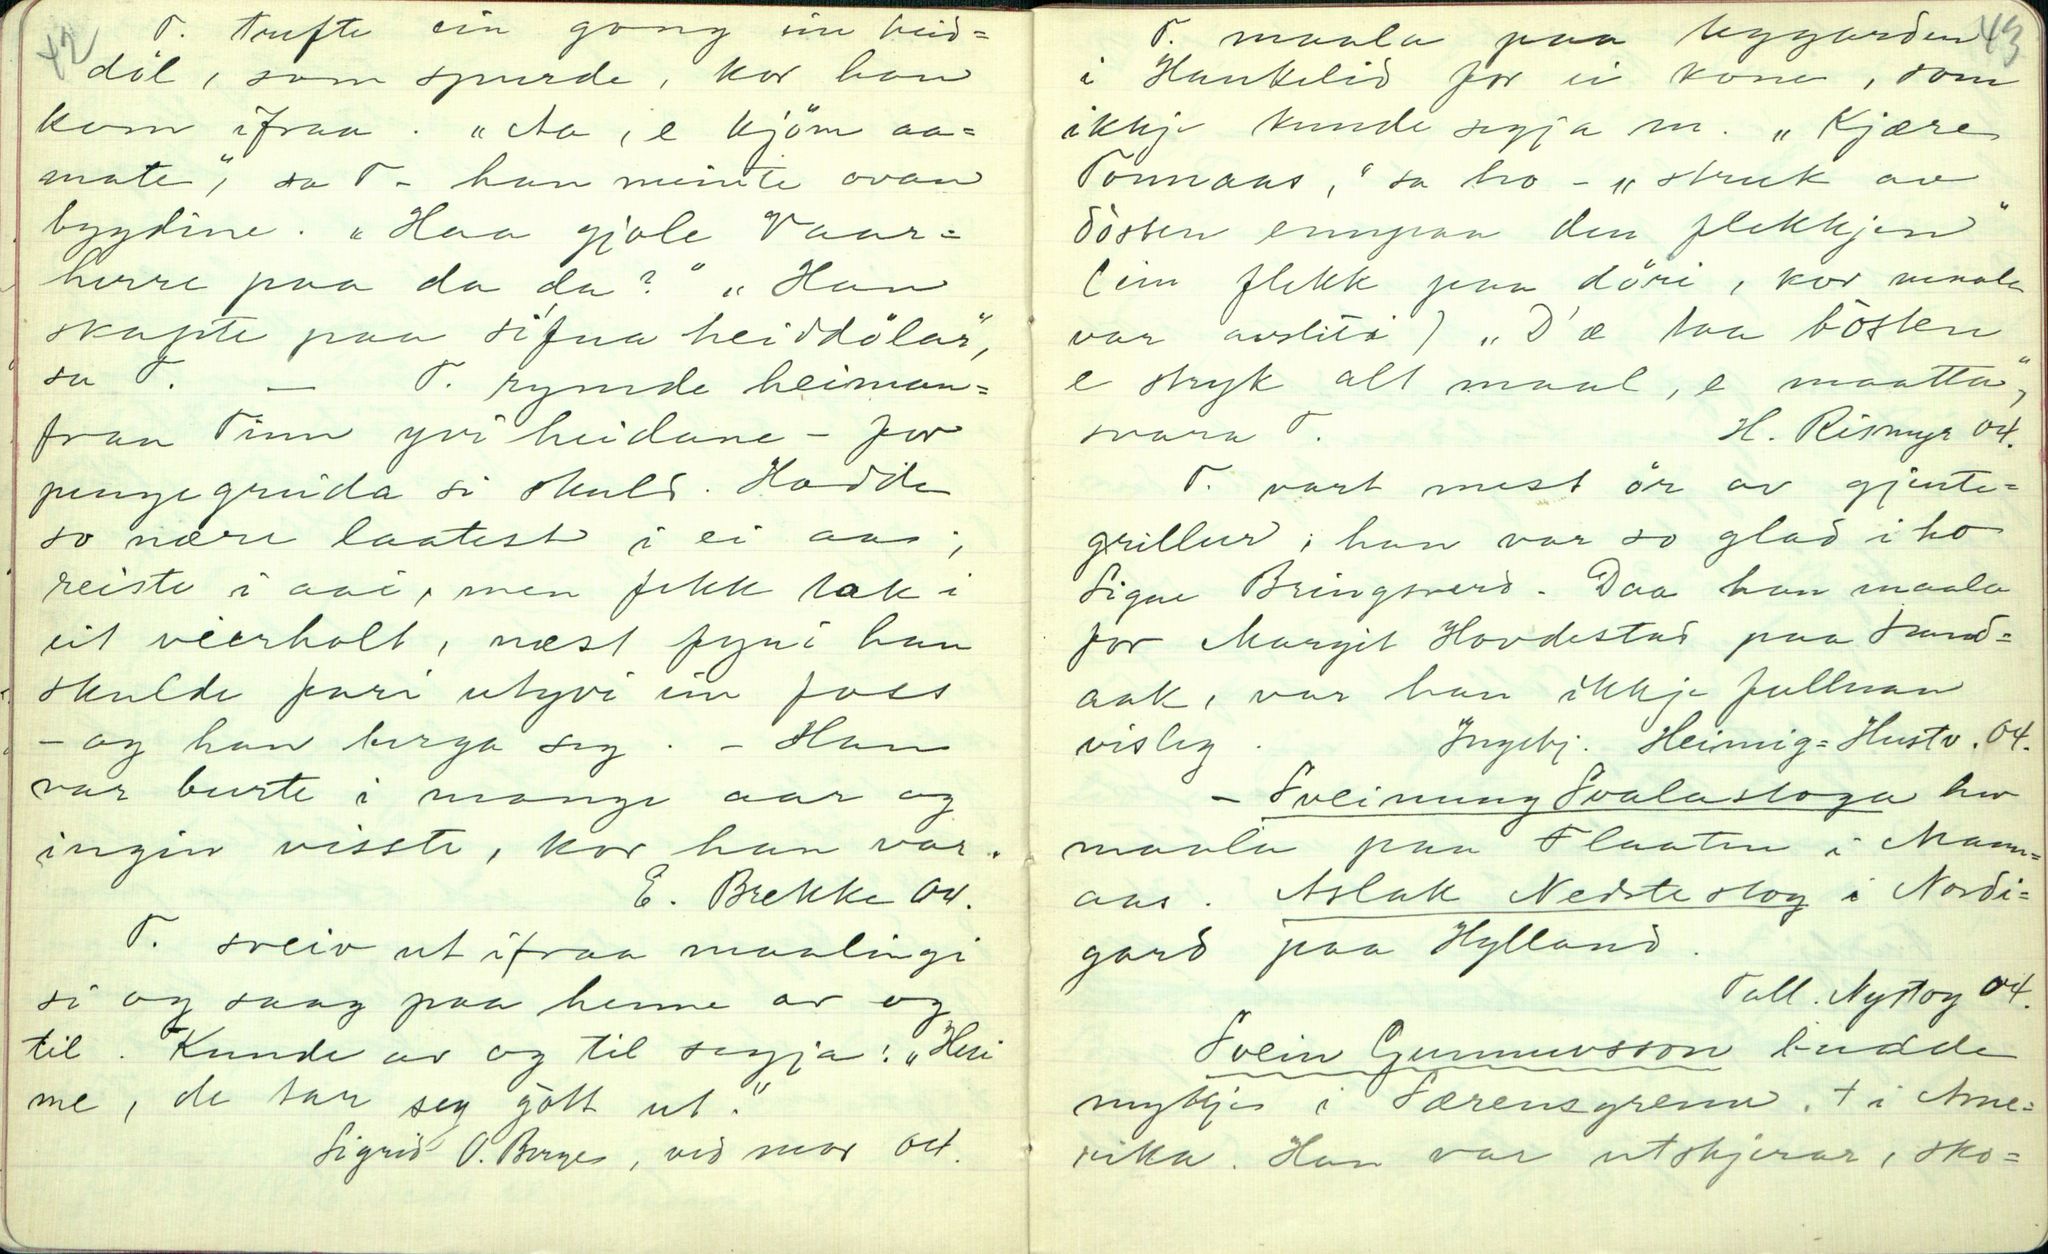 42
T. trefte ein gong ein heid=
döl, som spurde, kor han
kom ifraa. „Aa, e kjöm aa=
mate," sa T - han meinte ovan
bygdine. „Haa gjole Vaar=
herre paa da da?" „Han
skapte paa sifna heiddölar",
sa T. — T. rymde heiman=
fraa Tinn yvi heidane - for
pengegreida si skuld. Hadde
so nære laatest i ei aai;
reiste i aai, men fekk tak i
eit veerholt, næst fyri han
skulde fari utyvi ein foss
- og han berga seg. - Han
var burte i mange aar og
ingin visste, kor han var.
E. Brekke 04.
T. sveiv ut ifraa maalingi
si og saag paa henne av og
til. Kunde av og til segja: „Heri
me, de tar seg gött ut."
Sigrid O. Berge, vid mor 04.
43
T. maala paa Uggarden
i Haukelid for ei kone, som
ikkje kunde segja m. „Kjære
Tonnaas," sa ho - „struk av
bösten ennpaa den flekkjen"
(ein flekk paa döri, kor maala
var avsliti) „D'æ taa bösten
e stryk alt maal, e maatta",
svara T. H. Rismyr 04.
T. vart mest ör av gjente=
grillur; han var so glad i ho
Signe Bringsverd. Daa han maala
for Margit Hovdestad paa Sand=
aak, var han ikkje fullnan
visleg. Ingebj. Heimig=Hustv. 04.
- Sveinung Svalastoga hev
maala paa Flaaten i Mann=
aas. Aslak Nedstestog i Nordi=
gard paa Hylland.
Tall. Nystog 04.
Svein Gunnuvsson budde
mykje i Særensgrenn. † i Ame=
rika. Han var utskjerar, sko=